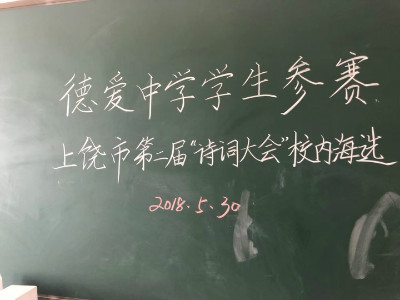 德爱中学学生参赛
上饶市第二届“诗词大会”校内海选
2018.5.30